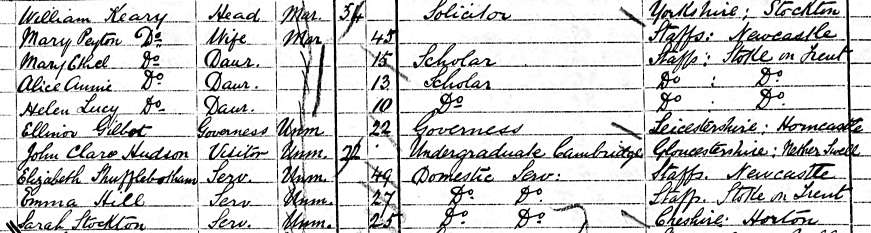 William Keary Head Mar. 54 Solicitor Yorkshire: Stockton
Mary Peyton Do Wife Mar 45 Staffs: Newcastle
Mary Ethel Do Daur. 15 Scholar Staffs: Stoke on Trent
Alice Annie Do Daur. 13 Scholar Do : Do
Helen Lucy Do Daur. 10 Do Do : Do
Ellinor Gilbot Governess Unm. 22 Governess Leicestershire: Horncastle
John Clare Hudson Visitor Unm. 22 Undergraduate Cambridge Gloucestershire: Nether Swell
Elizabeth Shufflebotham Serv. Unm. 49 Domestic Serv: Staffs. Newcastle
Emma Hill Serv Unm. 27 Do Do. Staffs. Stoke on Trent
Sarah Stockton Serv. Unm. 25 Do Do Cheshire: Horton